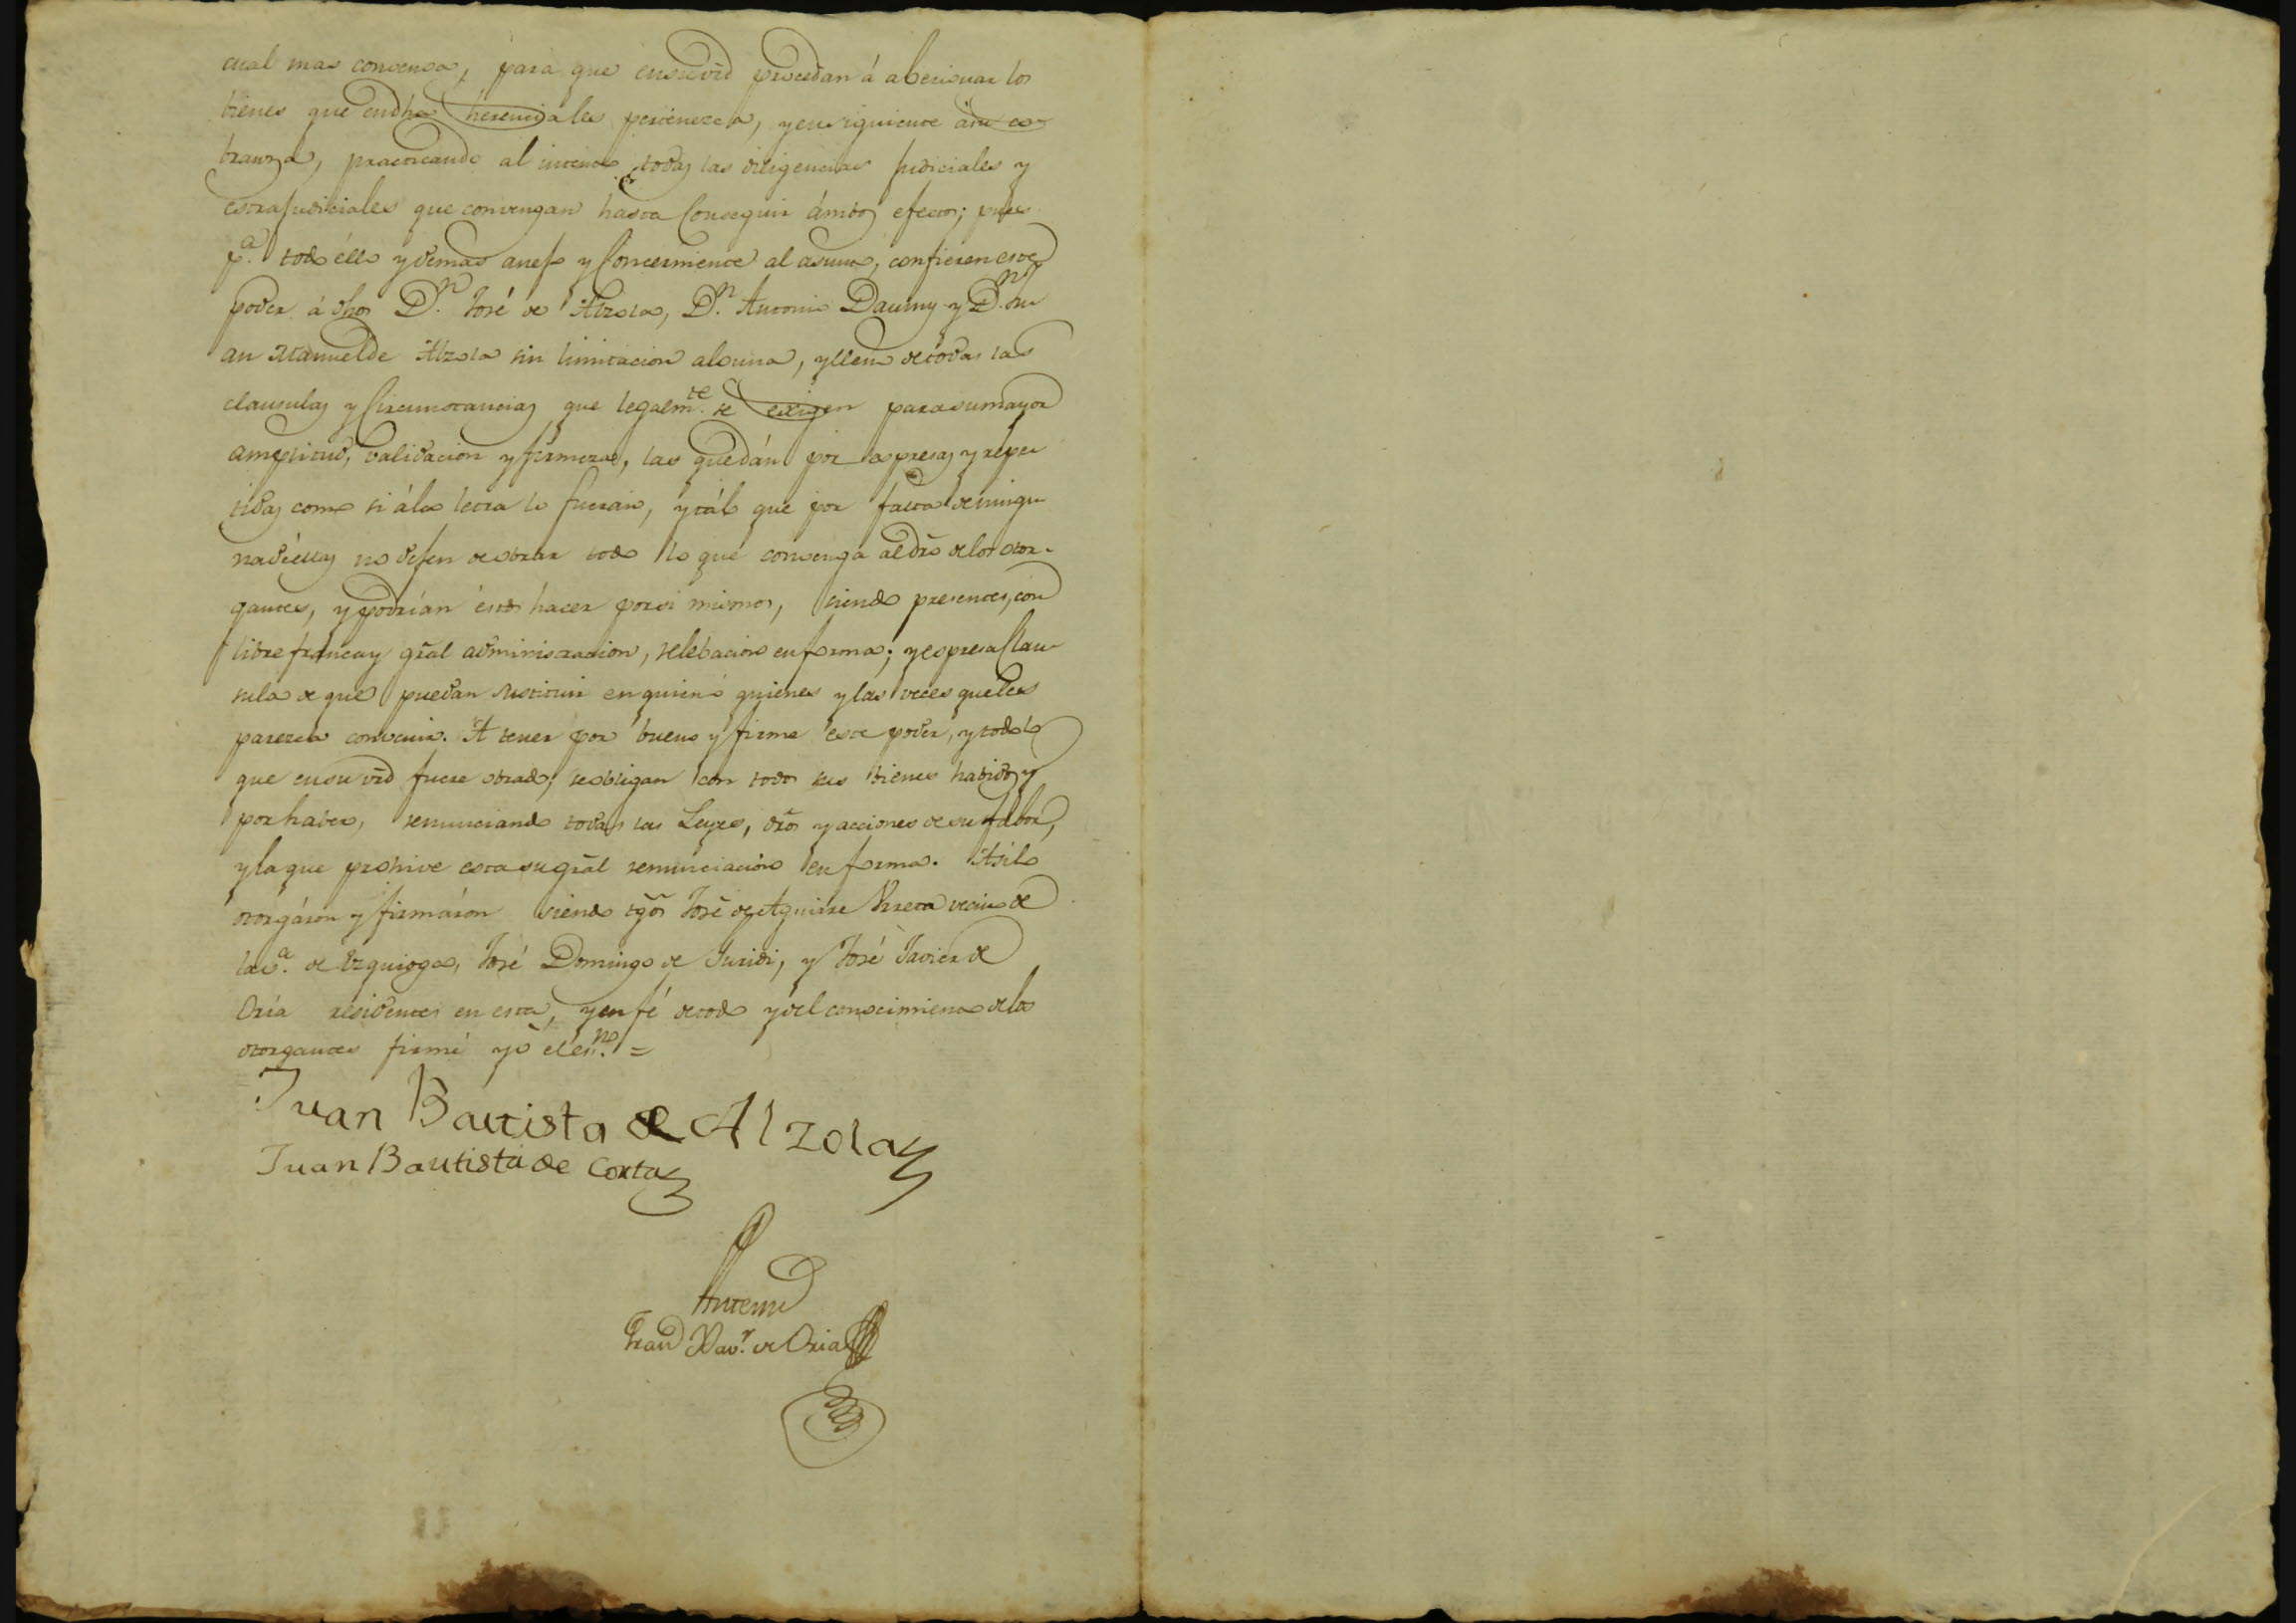 cual mas convenga, para que ensuvrd procedan á aberiguar los
bienes que endha herencia les pertenezca, y en siguiente á su co
branza, practicando al intento todas las diligencias judiciales y
estrajudiciales que convengan hasta conseguir ámbos efectos; pues
pª. todo éllo y demas anejo y concerniente al asunto, confieren este
poder á dhos Dⁿ. José de Alzola, Dⁿ. Antonio Dauny y Dⁿ. Ju
an Manuel de Alzola sin limitacion alguna, y lleno de todas las
clausulas y circunstancias que legalmᵗᵉ. se exigen para su mayor
amplitud, validacion y firmeza, las que dán por expresas y repe
tidas como si á la letra lo fueran, y tál que por falta de ningu
na de éllas no dejen de obrar todo lo que convenga al dro̅ de los otor-
gantes, y podrían éstos hacer por si mismos, siendo presentes, con
libre franca y gral administracion, relebacion en forma; y espresa clau
sula de que puedan sustituir en quien ó quienes y las veces que les
parezca convenir. A tener por bueno y firme este poder, y todo lo
que ensuvrd fuere obrado, se obligan con todos sus bienes habidos y
por haber, renunciando todas las Leyes, dros y acciones de su fabor,
y la que prohive esta su gral renunciacion en forma. Así lo
otorgáron y firmáron siendo tgos José de Aguirre Urreta vecino de
la vª. de Ezquioga, José Domingo de Iuridi, y José Javier de
Oria residentes en esta, y en fé de todo y del conocimiento de los
otorgantes firmé yo el esⁿᵒ. =
Juan Bautista de Alzola
Juan Bautista de Corta
Antemi
Franᶜᵒ Xavʳ. de Oria